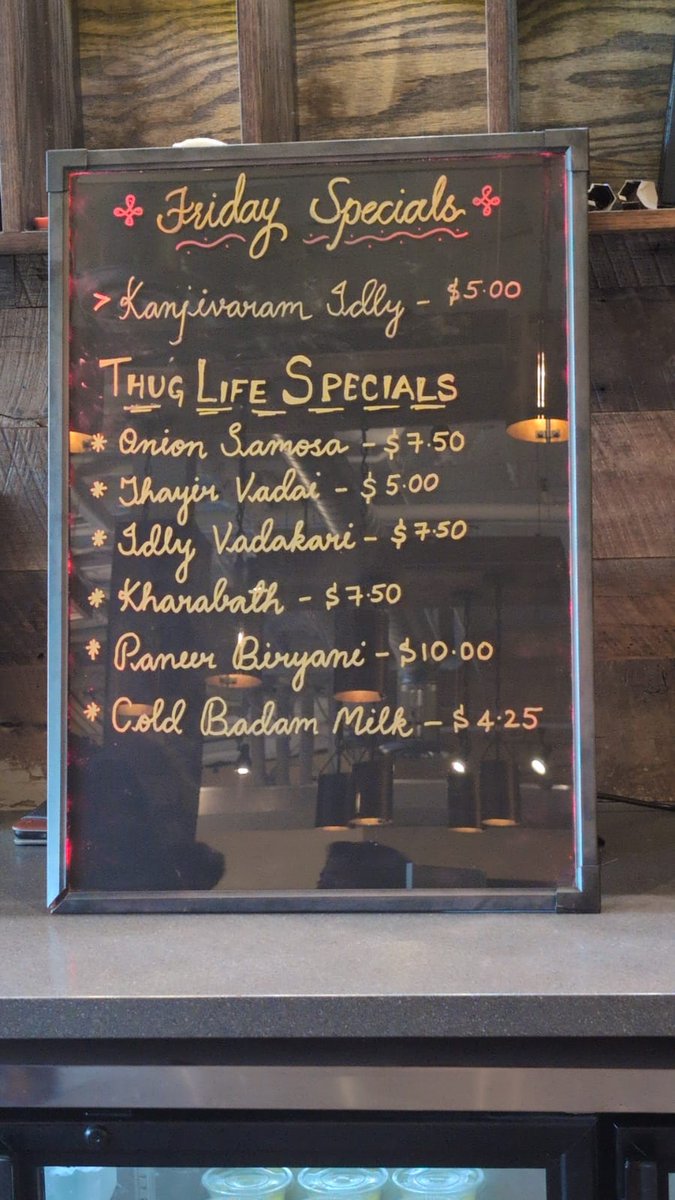 Friday Specials
> Kanjivaram Idly - $5.00
THUG LIFE SPECIALS
* Onion Samosa - $7.50
* Thayir Vadai - $5.00
* Idly Vadakari - $7.50
* Kharabath - $7.50
* Paneer Biryani - $10.00
* Cold Badam Milk - $4.25